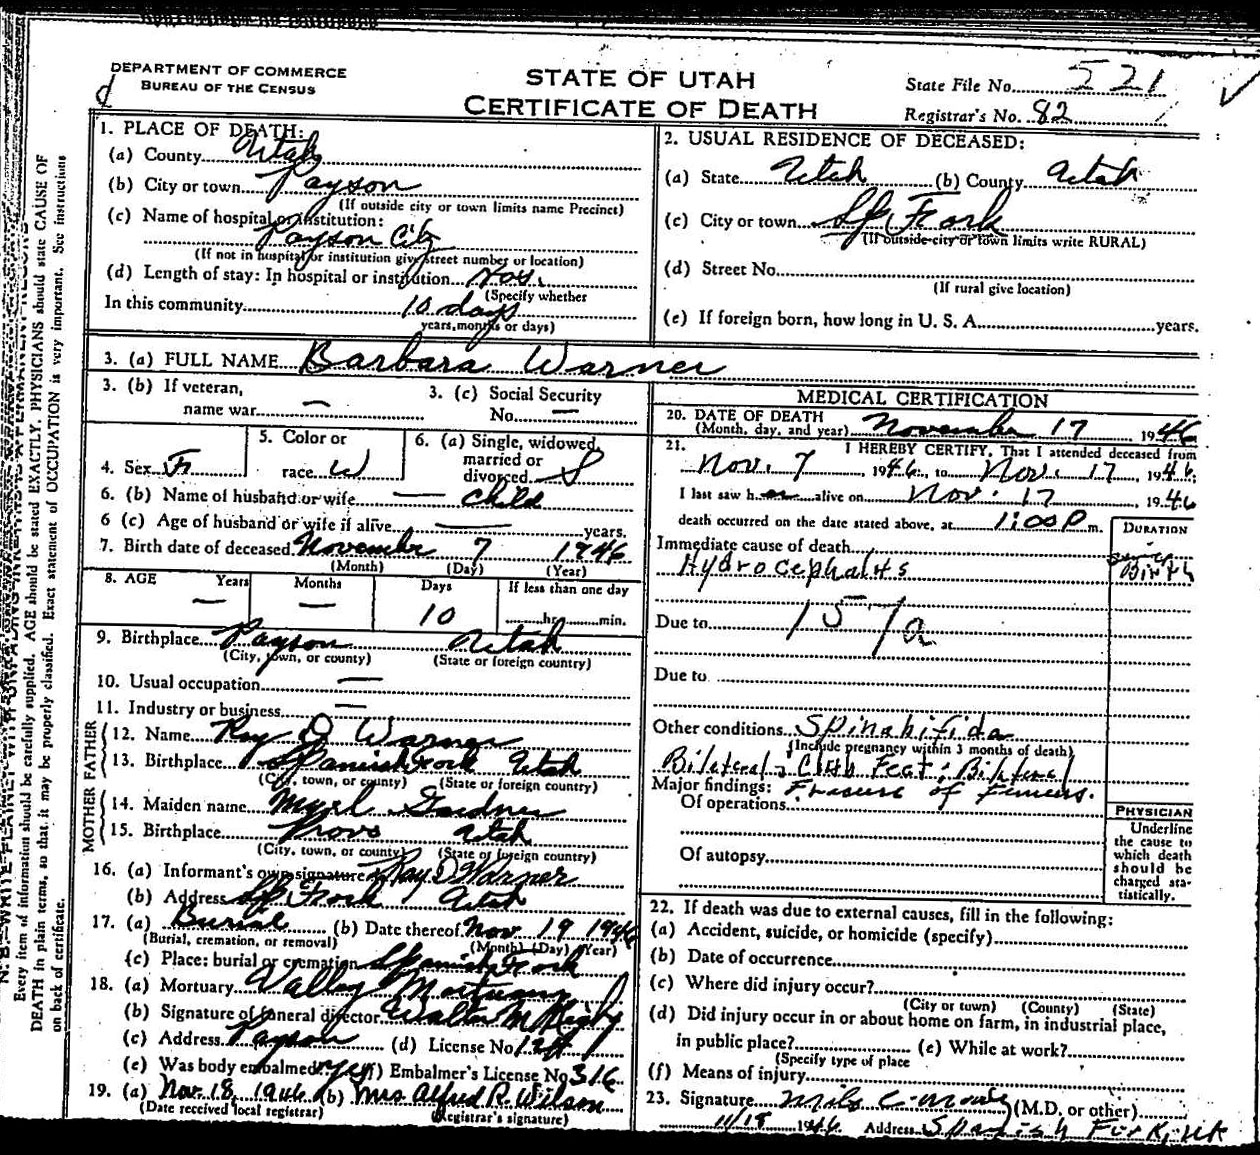 DEPARTMENT OF COMMERCE
BUREAU OF THE CENSUS
STATE OF UTAH
CERTIFICATE OF DEATH
State File No. 521
Registrar's No. 82
1. PLACE OF DEATH:
(a) County Utah
(b) City or town Payson
(If outside city or town limits name Precinct)
(c) Name of hospital or institution:
Payson City
(If not in hospital or institution give street number or location)
(d) Length of stay: In hospital or institution
(Specify whether
In this community 10 days
years, months or days)
2. USUAL RESIDENCE OF DECEASED:
(a) State Utah (b) County Utah
(c) City or town Sp Fork
(If outside city or town limits write RURAL)
(d) Street No.
(If rural give location)
(e) If foreign born, how long in U. S. A. years.
3. (a) FULL NAME Barbara Warner
3. (b) If veteran,
name war —
3. (c) Social Security
No. —
4. Sex F
5. Color or
race W
6. (a) Single, widowed,
married or
divorced S
6. (b) Name of husband or wife — child
6 (c) Age of husband or wife if alive — years.
7. Birth date of deceased November 7 1946
(Month) (Day) (Year)
8. AGE Years Months Days If less than one day
— — 10 hr. min.
9. Birthplace Payson Utah
(City, town, or county) (State or foreign country)
10. Usual occupation —
11. Industry or business —
FATHER
12. Name Ray D Warner
13. Birthplace Spanish Fork Utah
(City, town, or county) (State or foreign country)
MOTHER
14. Maiden name Myrl Gardner
15. Birthplace Provo Utah
(City, town, or county) (State or foreign country)
16. (a) Informant's own signature Ray D Warner
(b) Address Sp Fork Utah
17. (a) Burial (b) Date thereof Nov. 19 1946
(Burial, cremation, or removal) (Month) (Day) (Year)
(c) Place: burial or cremation Spanish Fork
18. (a) Mortuary Valley Mortuary
(b) Signature of funeral director Walter M Rigby
(c) Address Payson (d) License No.
(e) Was body embalmed? yes (f) Embalmer's License No 316
19. (a) Nov. 18, 1946 (b) Mrs Alfred R. Wilson
(Date received local registrar) (Registrar's signature)
MEDICAL CERTIFICATION
20. DATE OF DEATH
(Month, day, and year) November 17 1946
21. I HEREBY CERTIFY, That I attended deceased from
Nov. 7, 1946, to Nov. 17, 1946;
I last saw h er alive on Nov. 17 1946
death occurred on the date stated above, at 1:00 P m.
DURATION
Immediate cause of death
Hydrocephalus
since
Birth
Due to 157a
Due to
Other conditions Spinabifida
(Include pregnancy within 3 months of death)
Bilateral Club Feet; Bilateral
Major findings: Fracure of Femurs.
Of operations
Of autopsy
PHYSICIAN
Underline
the cause to
which death
should be
charged sta-
tistically.
22. If death was due to external causes, fill in the following:
(a) Accident, suicide, or homicide (specify)
(b) Date of occurrence
(c) Where did injury occur?
(City or town) (County) (State)
(d) Did injury occur in or about home on farm, in industrial place,
in public place? (e) While at work?
(Specify type of place
(f) Means of injury
23. Signature Milo C. Moody (M.D. or other)
11/18 1946 Address Spanish Fork, Ut
Every item of information should be carefully supplied. AGE should be stated EXACTLY. PHYSICIANS should state CAUSE OF
DEATH in plain terms, so that it may be properly classified. Exact statement of OCCUPATION is very important. See instructions
on back of certificate.